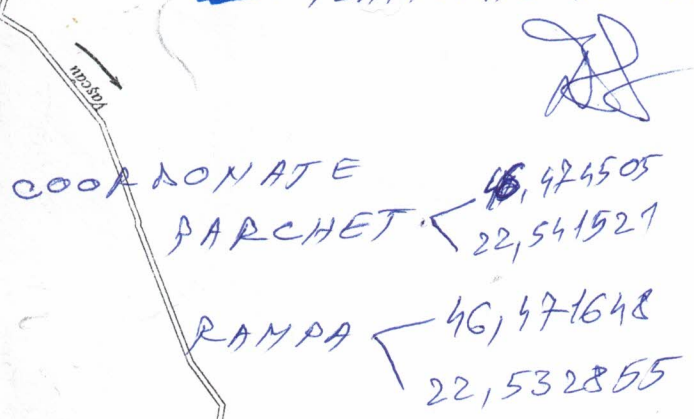 Vașcău
COORDONATE
PARCHET 46,474505
22,541521
RAMPA 46,471648
22,532855